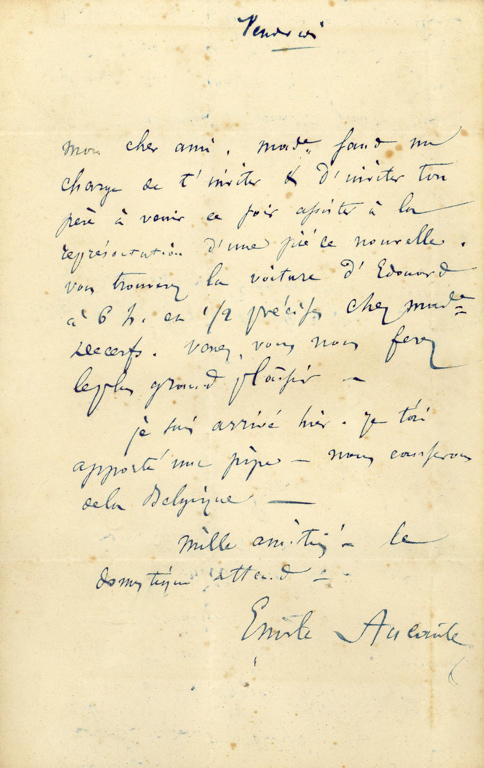 Vendredi
mon cher ami. made Sand me
charge de t'inviter & d'inviter ton
père à venir ce soir assister à la
représentation d'une pièce nouvelle.
vous trouverez la voiture d'Edouard
à 6 h. et 1/2 précises chez made
Decerfs. venez, vous nous ferez
le plus grand plaisir —
je suis arrivé hier. je t'ai
apporté une pipe — nous causerons
de la Belgique —
mille amitiés — le
domestique attend —
Emile Aucante